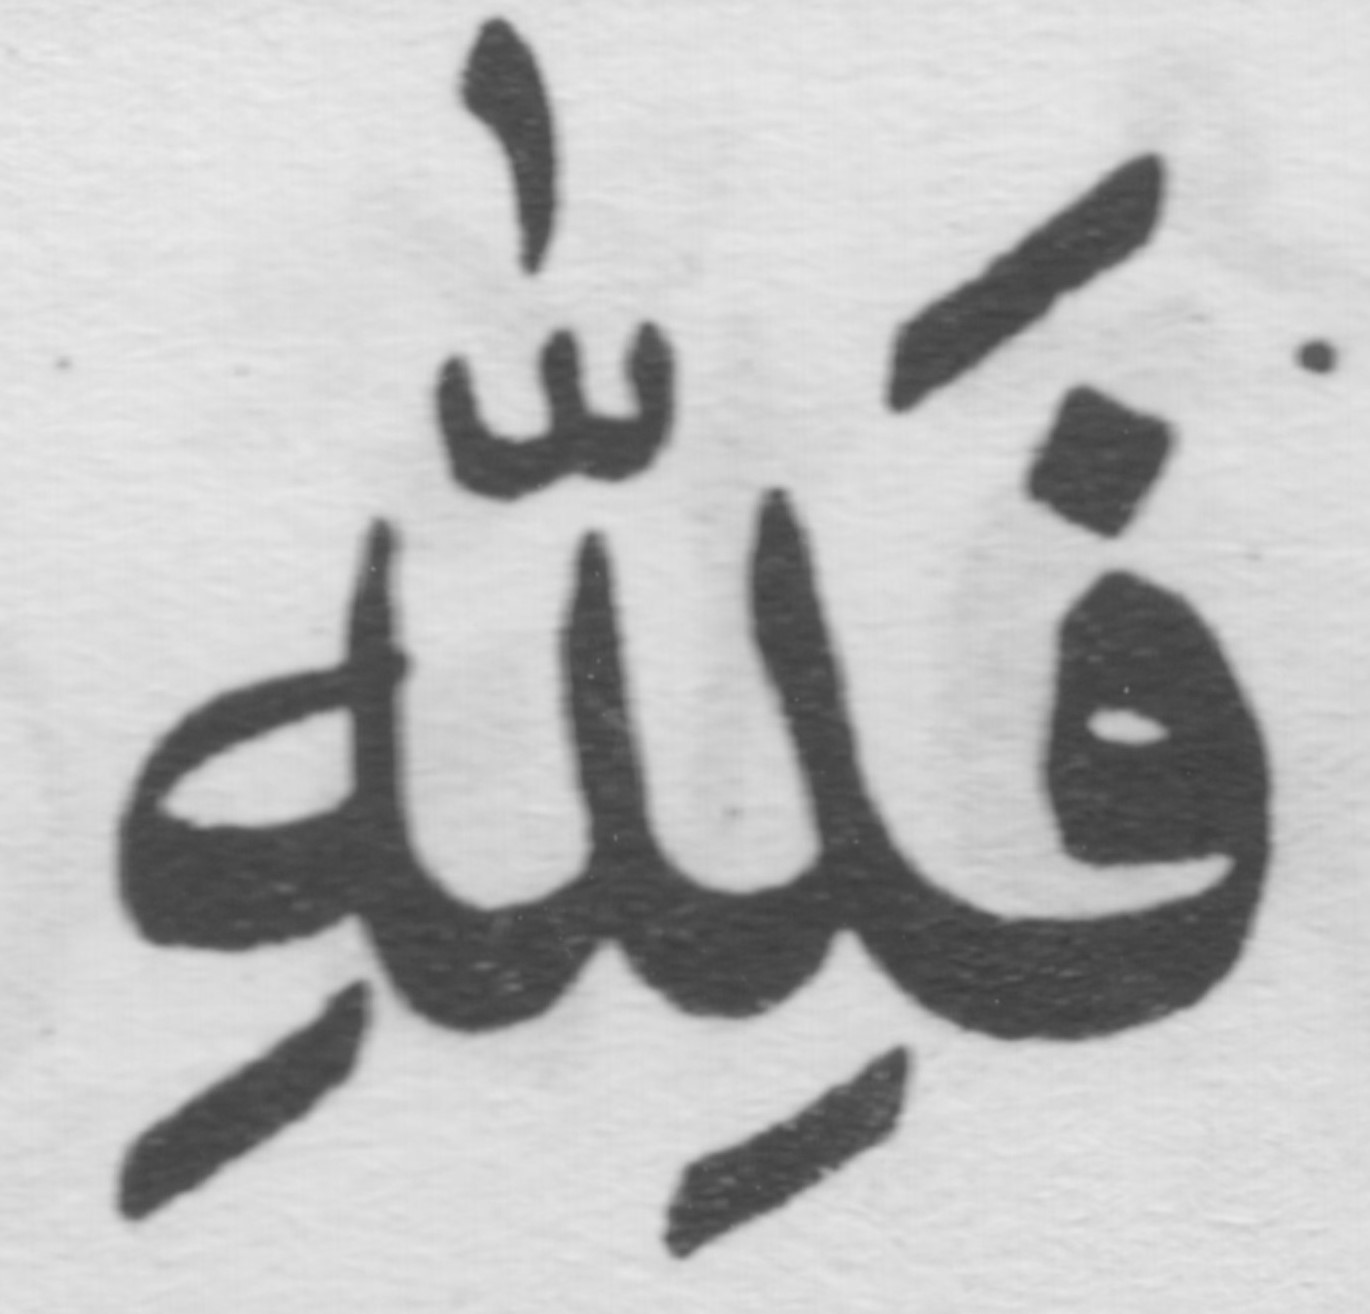 فَلِلّٰهِ